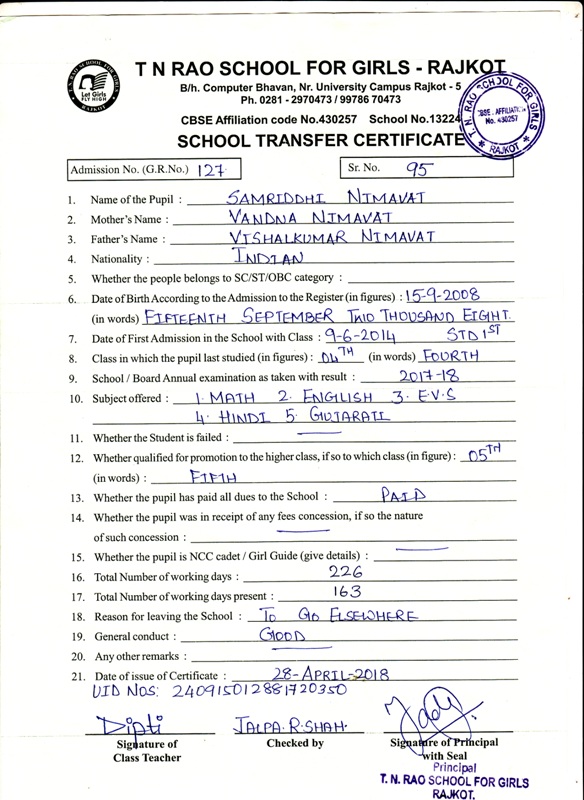 T. N. RAO SCHOOL FOR GIRLS
Let Girls
FLY HIGH
RAJKOT
T N RAO SCHOOL FOR GIRLS - RAJKOT
B/h. Computer Bhavan, Nr. University Campus Rajkot - 5
Ph. 0281 - 2970473 / 99786 70473
CBSE Affiliation code No.430257 School No.13224
T. N. RAO SCHOOL FOR GIRLS
CBSE. AFFILIATION
No. 430257
RAJKOT
SCHOOL TRANSFER CERTIFICATE
Admission No. (G.R.No.) 127 Sr. No. 95
1. Name of the Pupil : SAMRIDDHI NIMAVAT
2. Mother's Name : VANDNA NIMAVAT
3. Father's Name : VISHALKUMAR NIMAVAT
4. Nationality : INDIAN
5. Whether the people belongs to SC/ST/OBC category :
6. Date of Birth According to the Admission to the Register (in figures) : 15-9-2008
(in words) FIFTEENTH SEPTEMBER TWO THOUSAND EIGHT.
7. Date of First Admission in the School with Class : 9-6-2014 STD 1ST
8. Class in which the pupil last studied (in figures) : 04TH (in words) FOURTH
9. School / Board Annual examination as taken with result : 2017-18
10. Subject offered : 1. MATH 2. ENGLISH 3. E.V.S
4. HINDI 5. GUJARATI
11. Whether the Student is failed :
12. Whether qualified for promotion to the higher class, if so to which class (in figure) : 05TH
(in words) : FIFTH
13. Whether the pupil has paid all dues to the School : PAID
14. Whether the pupil was in receipt of any fees concession, if so the nature
of such concession :
15. Whether the pupil is NCC cadet / Girl Guide (give details) :
16. Total Number of working days : 226
17. Total Number of working days present : 163
18. Reason for leaving the School : TO GO ELSEWHERE
19. General conduct : GOOD
20. Any other remarks :
21. Date of issue of Certificate : 28-APRIL-2018
UID NOS: 240915012881720350
Dipti JALPA.R.SHAH.
Signature of Class Teacher Checked by Signature of Principal with Seal
Principal
T. N. RAO SCHOOL FOR GIRLS
RAJKOT.